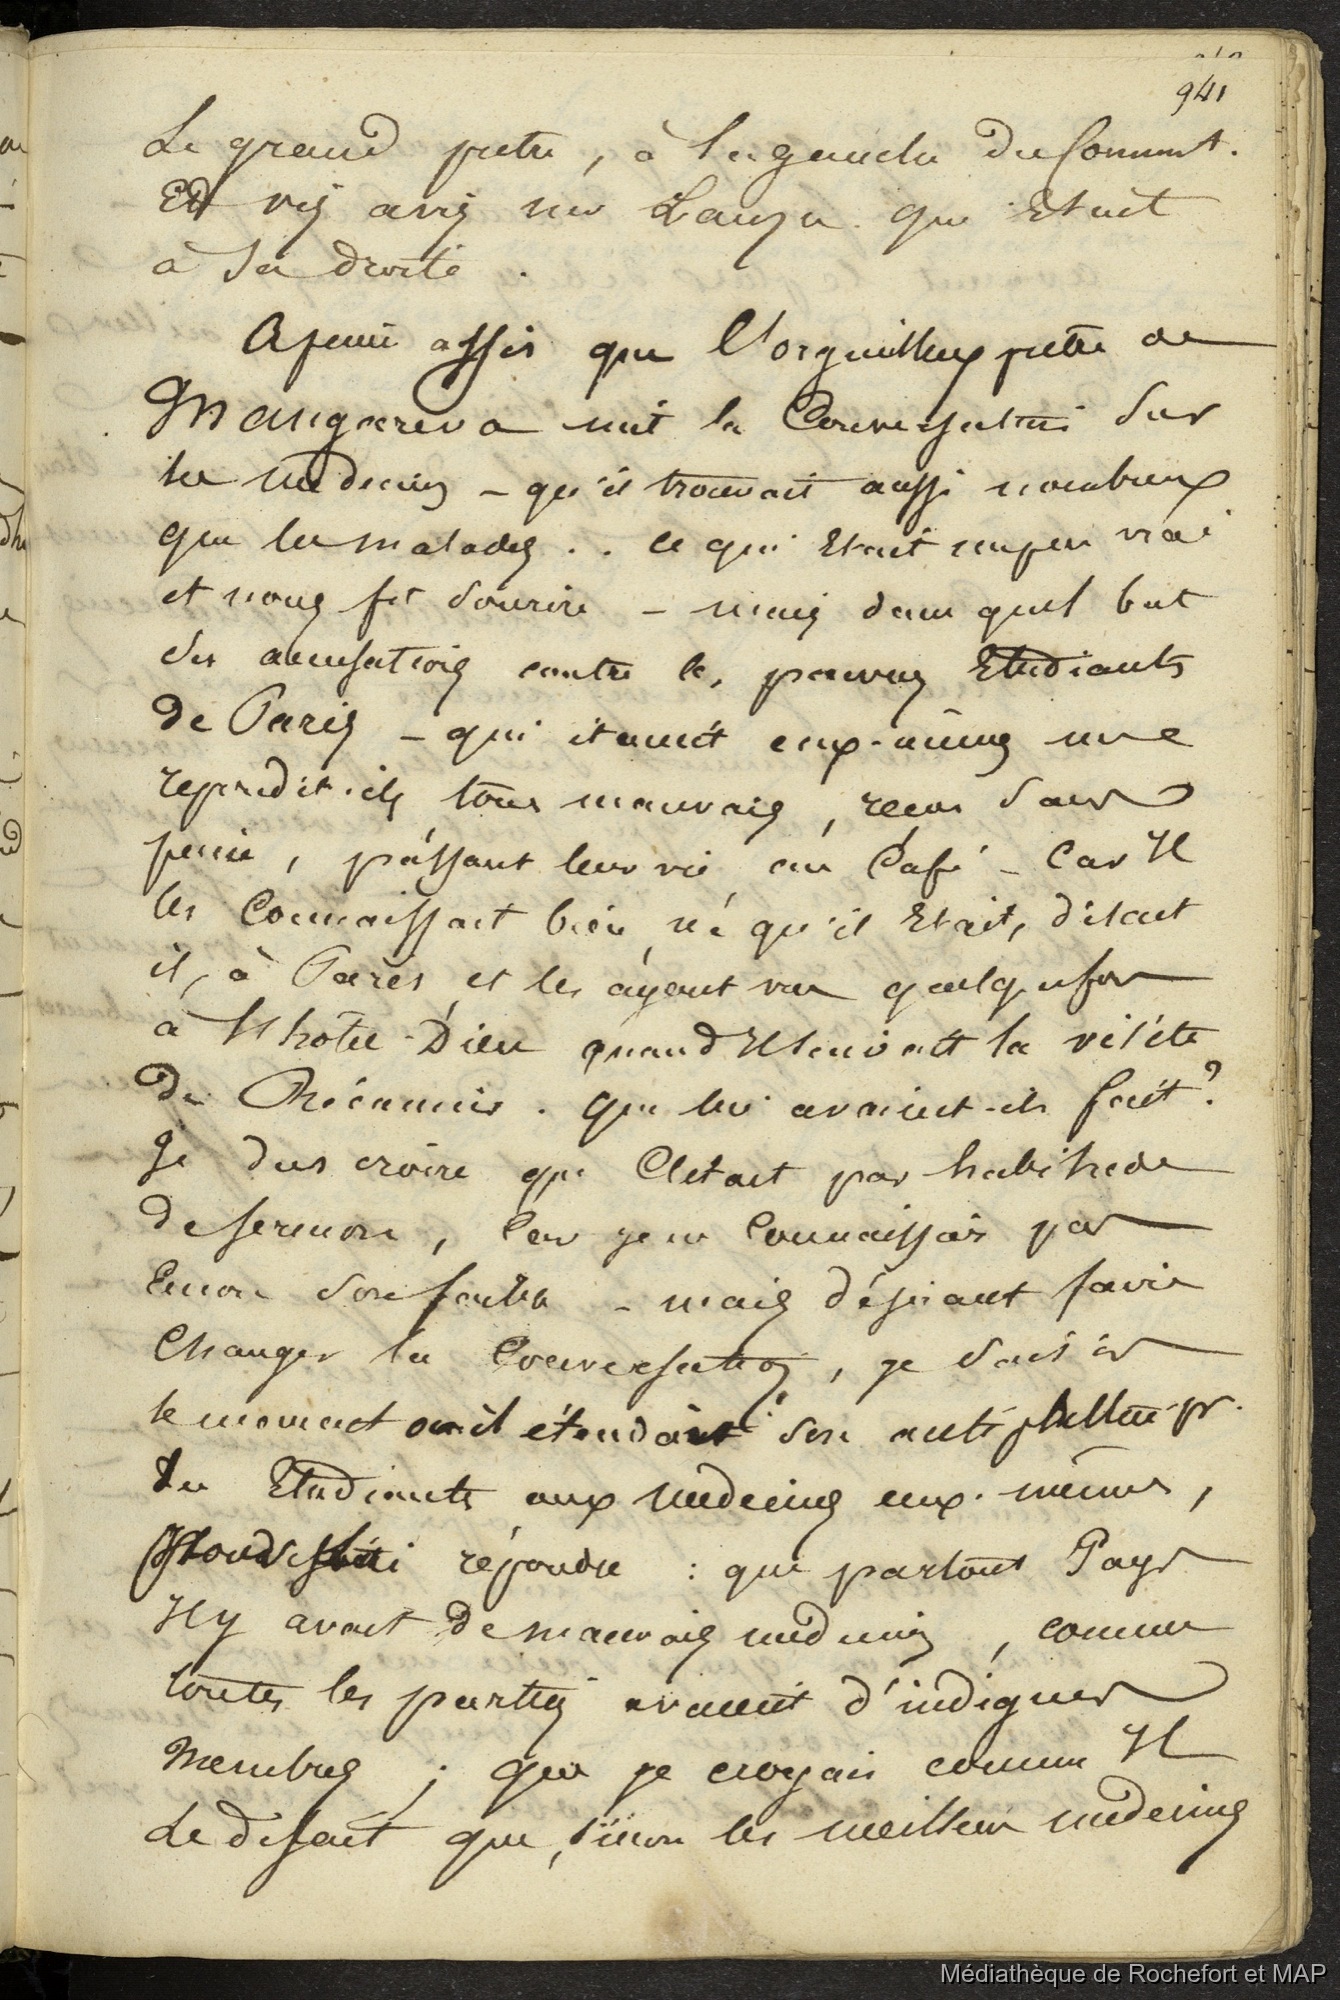 941
Le grand prêtre, à la gauche du Command.
Et vis avis mr Lauzu qui Etait
à sa droite.
Apeine assis que l'orguilleux prêtre de
Mangareva mit la Conversation sur
les médecins - qu'il trouvait aussi nombreux
que les malades .. ce qui Etait unpeu vrai
et nous fit sourire - mais dans quel but
des accusations contre les pauvres Etudiants
de Paris - qui étaient eux-mêmes me
repondit-il, tous mauvais, recus sans
peine, pássant leur vie au Café - Car Il
les Connaissait bien né qu'il Etait, disait
il, à Paris, et les ayant vu quelquefois
à l'hôtel-Dieu quand Il suivait la visite
de Récamier. Que lui avaient-ils fait?
Je dus croire que C'etait par habitude
de sermon, Car je ne Connaissais pas
Encore son faible - mais désirant faire
Changer la Conversation, je saisis
le moment ou il étendait son antipathie pr.
les Etudiants aux médecins eux-mêmes,
répondre : que partout Pays
Il y avait de mauvais médecins, comme
toutes les parties avaient d'indignes
Membres ; que je croyais comme Il
le disait que, sinon les meilleurs médecins
Médiathèque de Rochefort et MAP